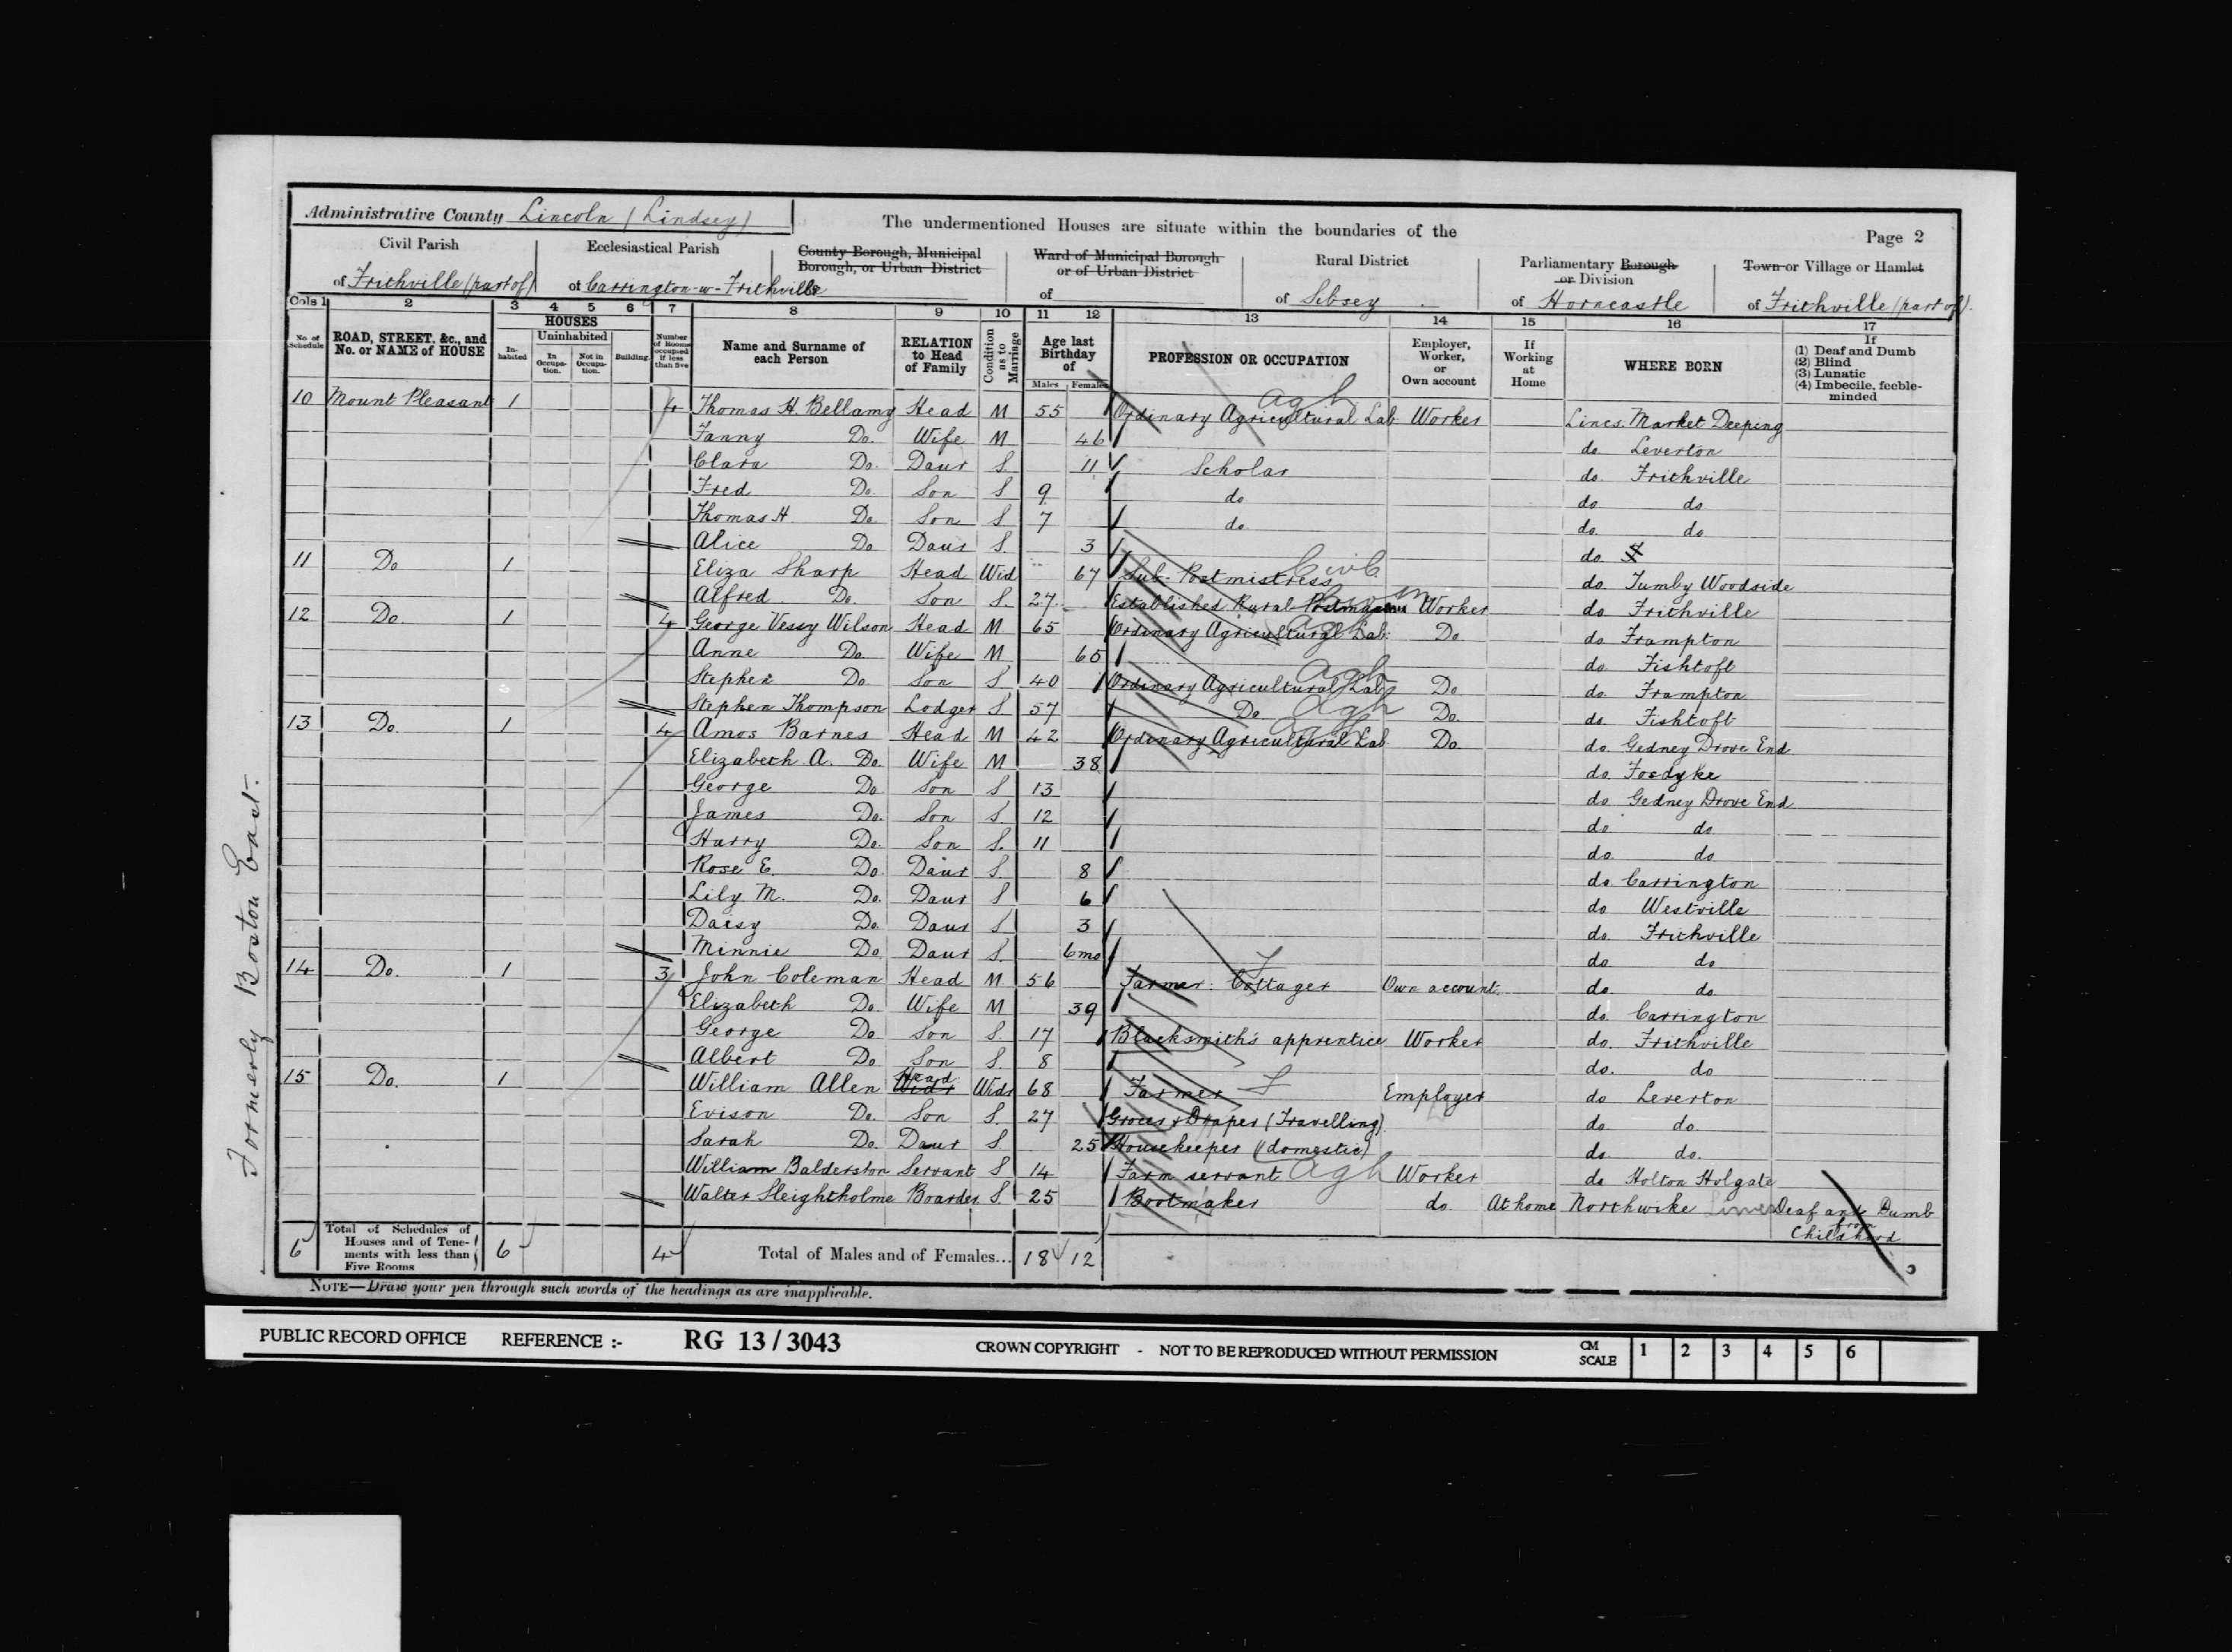 Administrative County Lincoln (Lindsey)
The undermentioned Houses are situate within the boundaries of the
Page 2
Civil Parish
of Frithville (part of)
Ecclesiastical Parish
of Carrington-w-Frithville
County Borough, Municipal
Borough, or Urban District
Ward of Municipal Borough
or of Urban District
of
Rural District
of Sibsey
Parliamentary Borough
or Division
of Horncastle
Town or Village or Hamlet
of Frithville (part of).
Cols 1 2 3 4 5 6 7 8 9 10 11 12 13 14 15 16 17
No. of Schedule
ROAD, STREET, &c., and
No. or NAME of HOUSE
HOUSES
Inhabited
Uninhabited
In Occupation.
Not in Occupation.
Building.
Number of Rooms occupied if less than five
Name and Surname of
each Person
RELATION
to Head
of Family
Condition as to Marriage
Age last
Birthday
of
Males Females
PROFESSION OR OCCUPATION
Employer,
Worker,
or
Own account
If
Working
at
Home
WHERE BORN
If
(1) Deaf and Dumb
(2) Blind
(3) Lunatic
(4) Imbecile, feeble-
minded
10 Mount Pleasant 1 4 Thomas H. Bellamy Head M 55 Ordinary Agricultural Lab Agh Worker Lincs. Market Deeping
Fanny Do. Wife M 46 do Leverton
Clara Do. Daur S 11 Scholar do. Frithville
Fred Do. Son S 9 do do do
Thomas H Do. Son S 7 do do. do
Alice Do Daur S. 3 do.
11 Do 1 Eliza Sharp Head Wid 67 Sub-Postmistress Civil do. Tumby Woodside
Alfred Do. Son S. 27 Established Rural Postman Worker do Frithville
12 Do 1 4 George Vessy Wilson Head M 65 Ordinary Agricultural Lab. Agh Do do Frampton
Anne Do. Wife M 65 do Fishtoft
Stephen Do Son S 40 Ordinary Agricultural Lab Agh Do do. Frampton
Stephen Thompson Lodger S 57 Do Agh Do. do. Fishtoft
13 Do. 1 4 Amos Barnes Head M 42 Ordinary Agricultural Lab Agh Do. do. Gedney Drove End
Elizabeth A. Do. Wife M 38 do. Fosdyke
George Do Son S 13 do Gedney Drove End
James Do. Son S 12 do do
Harry Do. Son S. 11 do. do
Rose E. Do Daur S. 8 do Carrington
Lily M. Do. Daur S 6 do Westville
Daisy Do. Daur S 3 do. Frithville
Minnie Do Daur S. 6mo do do
14 Do. 1 3 John Coleman Head M 56 Farmer Cottager Own account do. do
Elizabeth Do. Wife M 39 do. Carrington
George Do Son S. 17 Blacksmith's apprentice Worker do. Frithville
Albert Do Son S. 8 do. do
15 Do. 1 William Allen Widr Head Widr 68 Farmer Employer do Leverton
Evison Do. Son S. 27 Grocer & Draper (Travelling) do do.
Sarah Do. Daur S 25 Housekeeper (domestic) do. do.
William Balderston Servant S 14 Farm servant Agh Worker do Holton Holgate
Walter Sleightholme Boarder S. 25 Bootmaker do. At home Northwike Deaf and Dumb
from
Childhood
6 Total of Schedules of
Houses and of Tene-
ments with less than
Five Rooms
6 4 Total of Males and of Females... 18 12
NOTE—Draw your pen through such words of the headings as are inapplicable.
Formerly Boston East.
PUBLIC RECORD OFFICE REFERENCE :- RG 13 / 3043 CROWN COPYRIGHT - NOT TO BE REPRODUCED WITHOUT PERMISSION CM SCALE 1 2 3 4 5 6